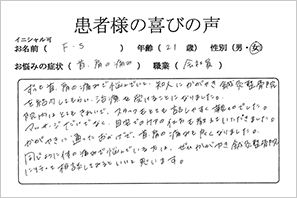 患者様の喜びの声
イニシャル可
お名前（ F・S ） 年齢（21歳） 性別（男・女）
お悩みの症状（首、肩の痛み） 職業（会社員）
私も首、肩の痛みで悩んでいた、知人にかがやき鍼灸整骨院
を紹介してもらい、治療を受けることになりました。
院内はとてもきれいで、スタッフもとても話しやすく楽しいでした。
マッサージだけでなく、自宅でのケアの仕方も教えていただきました。
かがやきに通ったおかげで、首、肩の痛みも良くなりました。
同じように体の痛みで悩んでいる方は、ぜひかがやき鍼灸整骨院
に行って相談してみるといいと思います。